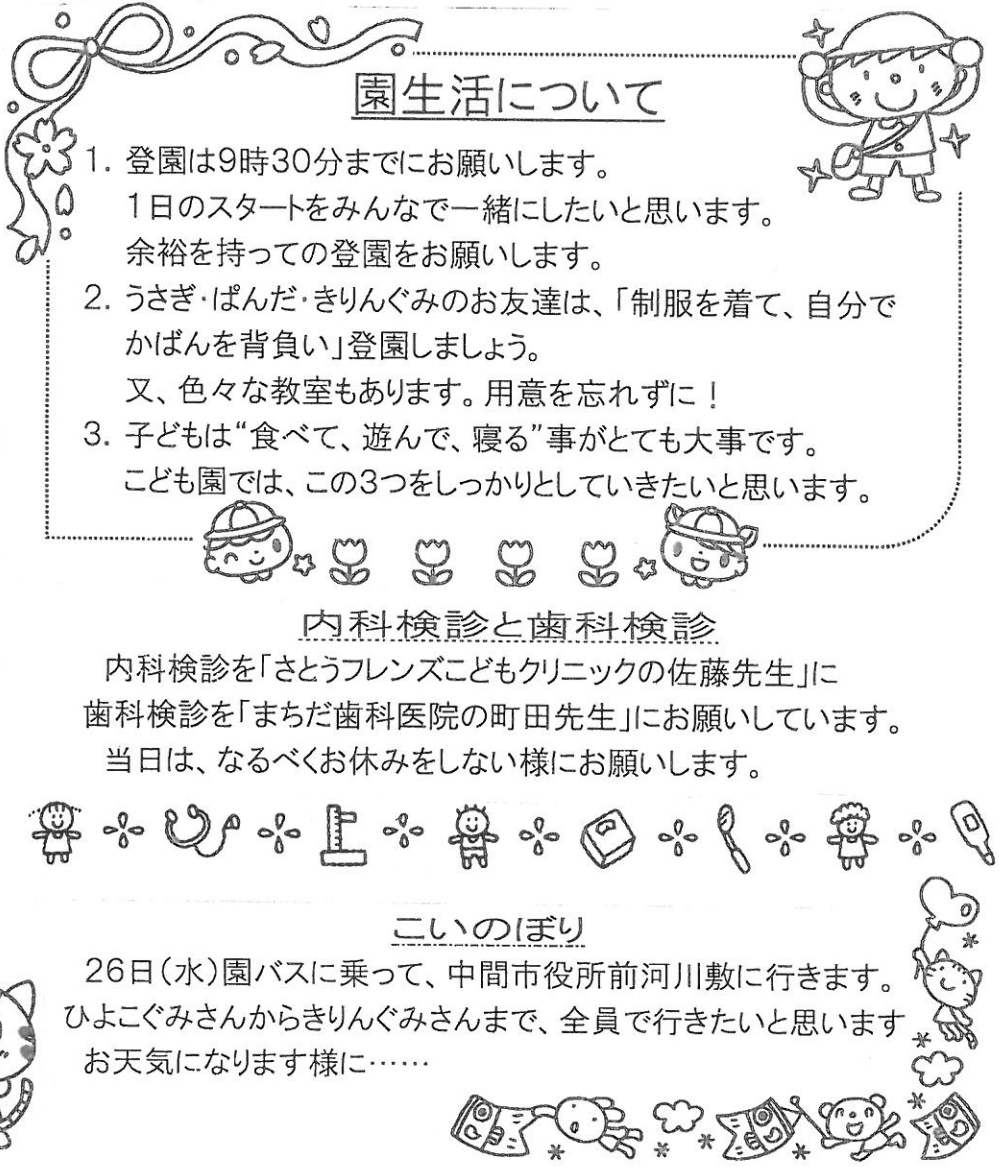 園生活について
1. 登園は9時30分までにお願いします。
1日のスタートをみんなで一緒にしたいと思います。
余裕を持っての登園をお願いします。
2. うさぎ・ぱんだ・きりんぐみのお友達は、「制服を着て、自分で
かばんを背負い」登園しましょう。
又、色々な教室もあります。用意を忘れずに！
3. 子どもは“食べて、遊んで、寝る”事がとても大事です。
こども園では、この3つをしっかりとしていきたいと思います。
内科検診と歯科検診
内科検診を「さとうフレンズこどもクリニックの佐藤先生」に
歯科検診を「まちだ歯科医院の町田先生」にお願いしています。
当日は、なるべくお休みをしない様にお願いします。
こいのぼり
26日(水)園バスに乗って、中間市役所前河川敷に行きます。
ひよこぐみさんからきりんぐみさんまで、全員で行きたいと思います
お天気になります様に……